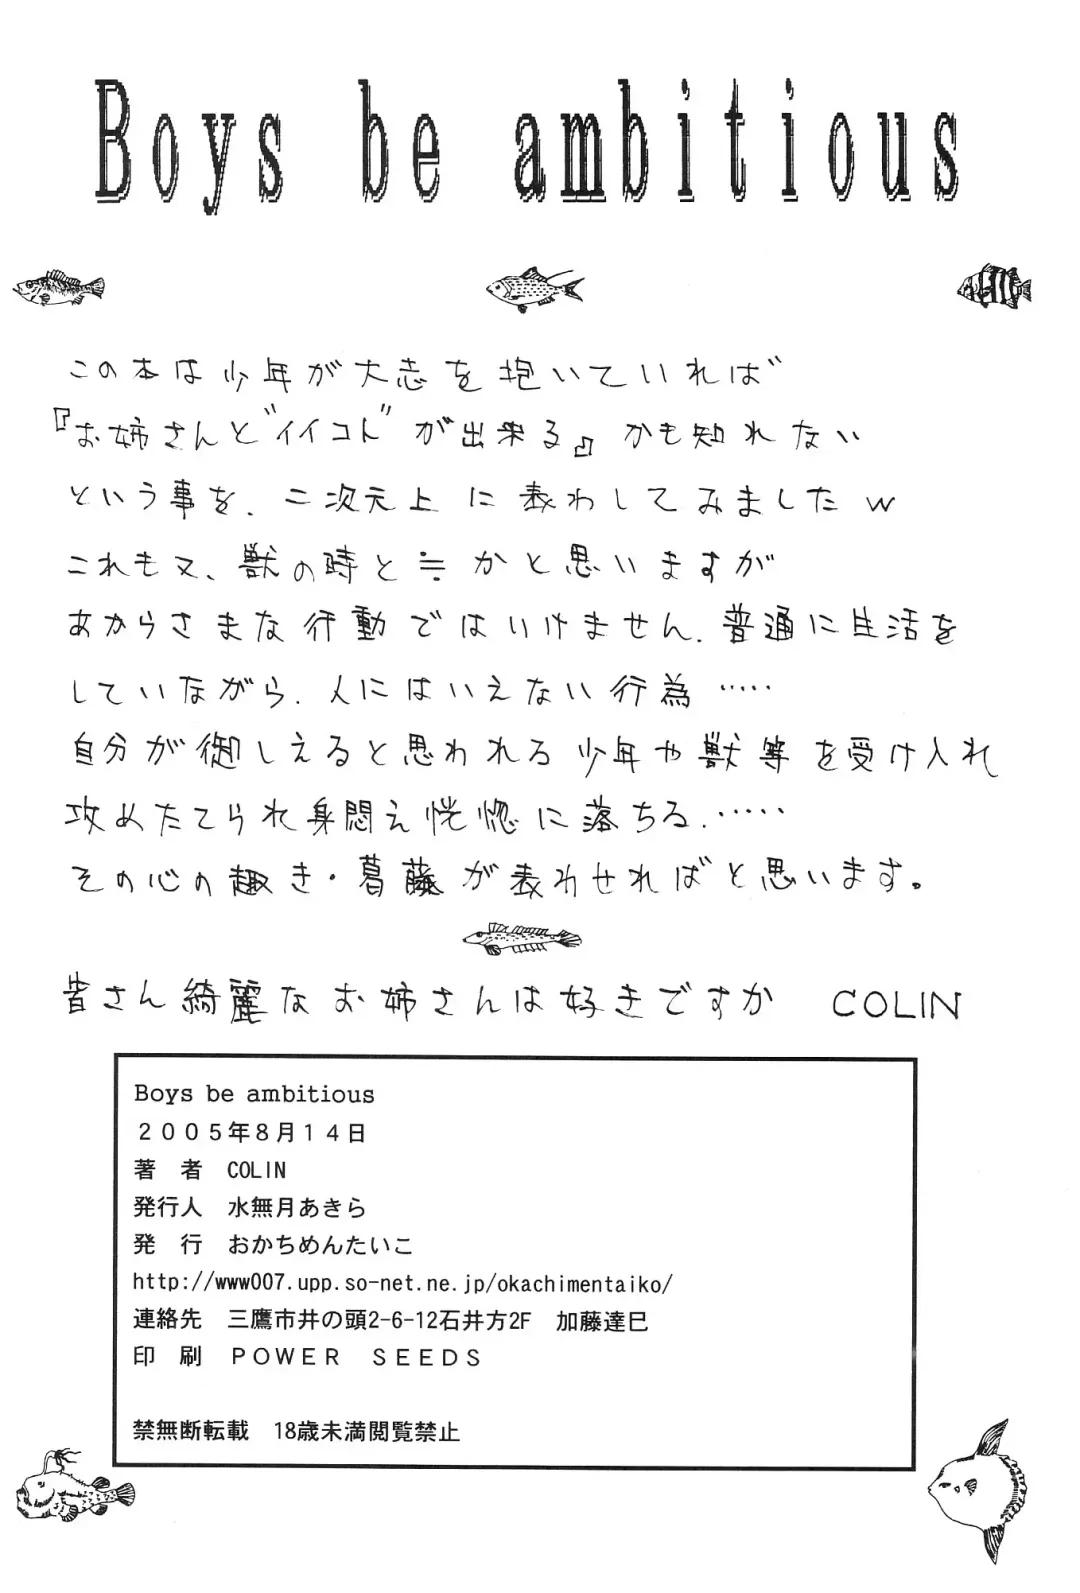 Boys be ambitious
この本は少年が大志を抱いていれば
『お姉さんと"イイコト"が出来る』かも知れない
という事を、二次元上に表わしてみましたw
これも又、獣の時と≒かと思いますが
あからさまな行動ではいけません、普通に生活を
していながら、人にはいえない行為……
自分が御しえると思われる少年や獣等を受け入れ
攻めたてられ身悶え恍惚に落ちる、……
その心の趣き・葛藤が表わせればと思います。
皆さん綺麗なお姉さんは好きですか　COLIN
Boys be ambitious
２００５年８月１４日
著　者　COLIN
発行人　水無月あきら
発　行　おかちめんたいこ
http://www007.upp.so-net.ne.jp/okachimentaiko/
連絡先　三鷹市井の頭2-6-12石井方2F　加藤達巳
印　刷　ＰＯＷＥＲ　ＳＥＥＤＳ
禁無断転載　18歳未満閲覧禁止